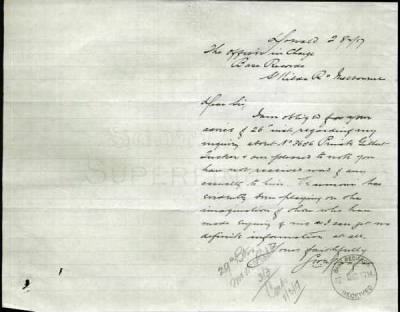 Donald 28/4/17
The Officer in Charge
Base Records
St Kilda Rd Melbourne
Dear Sir
I am obliged for your
advice of 26 inst. regarding my
inquiry about No 3606 Private Gilbert
& am pleased to note you
have not received word of any
casualty to him. Rumour has
evidently been playing on the
imagination of those who have
made inquiry of me and I can get no
definite information at all.
Yours faithfully
29th Btn
RECEIVED